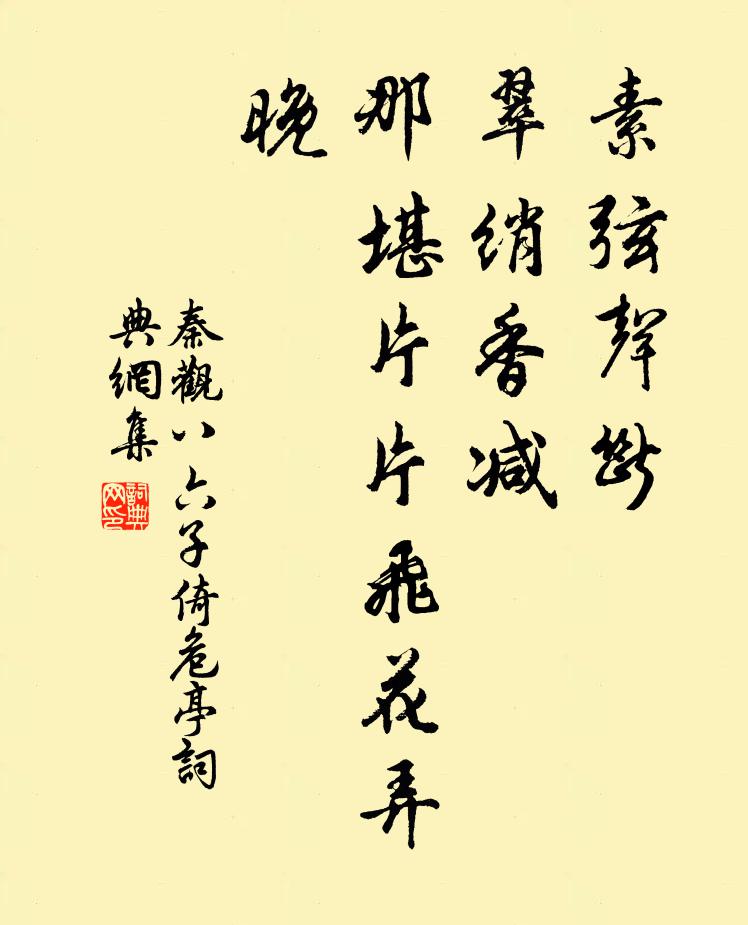 素弦聲斷
翠綃香減
那堪片片飛花弄
晚
秦觀八六子倚危亭詞
典網集
詞典
网印